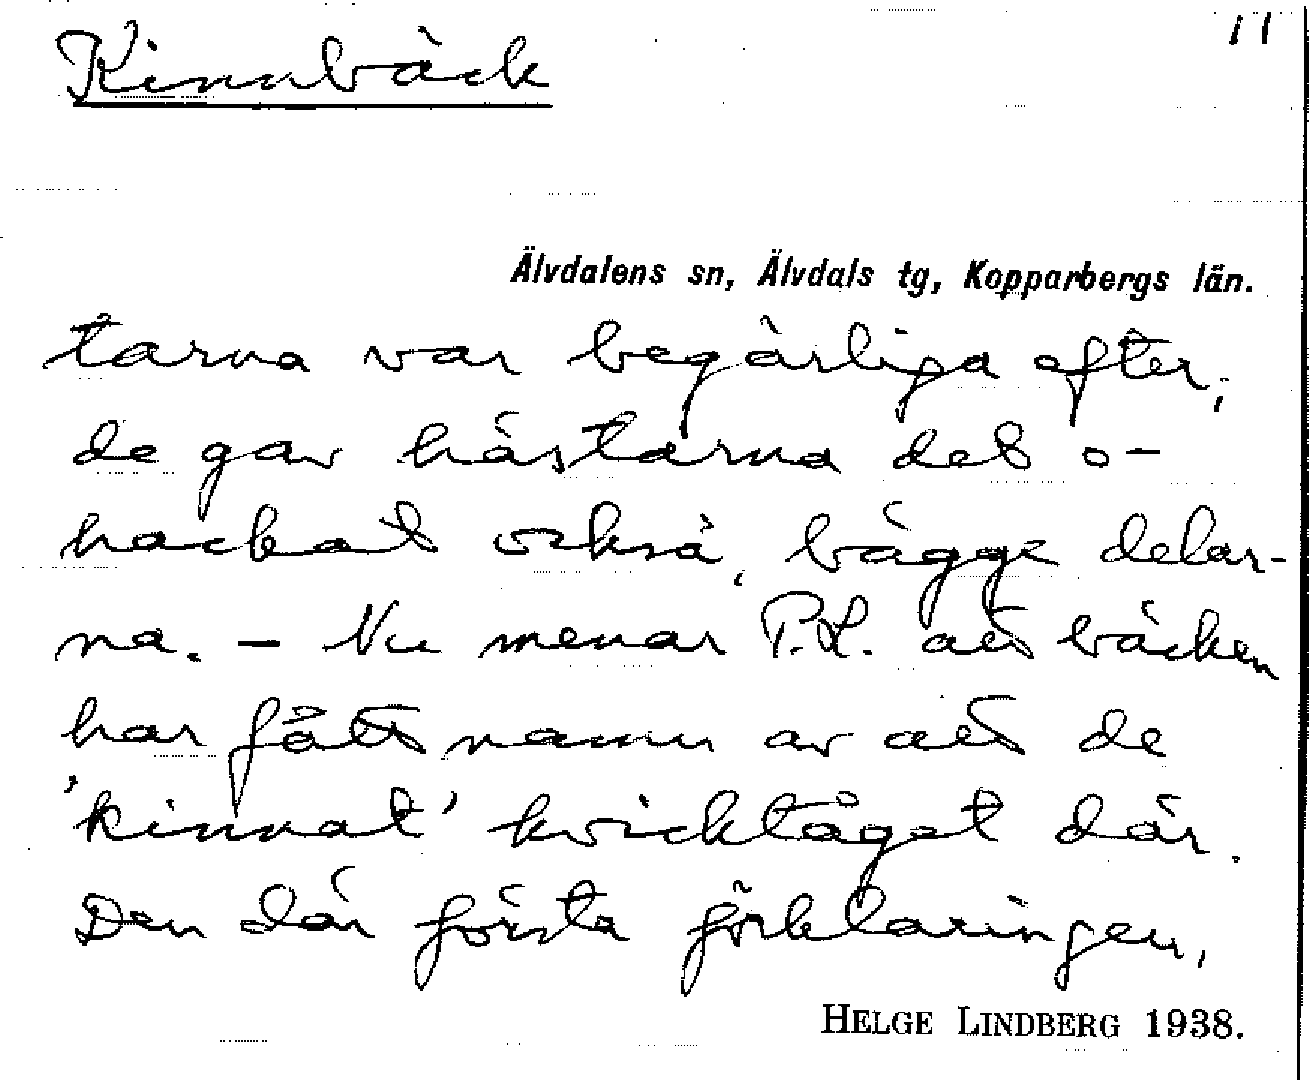 Kinnbäck
11
Älvdalens sn, Älvdals tg, Kopparbergs län.
tarna var begärliga after,
de gav hästarna det o-
hackat också, bägge delar-
na. — Nu menar P.L. att bäcken
har fått namn av att de
'kinnat' kvicktåget där.
Den där första förklaringen,
HELGE LINDBERG 1938.